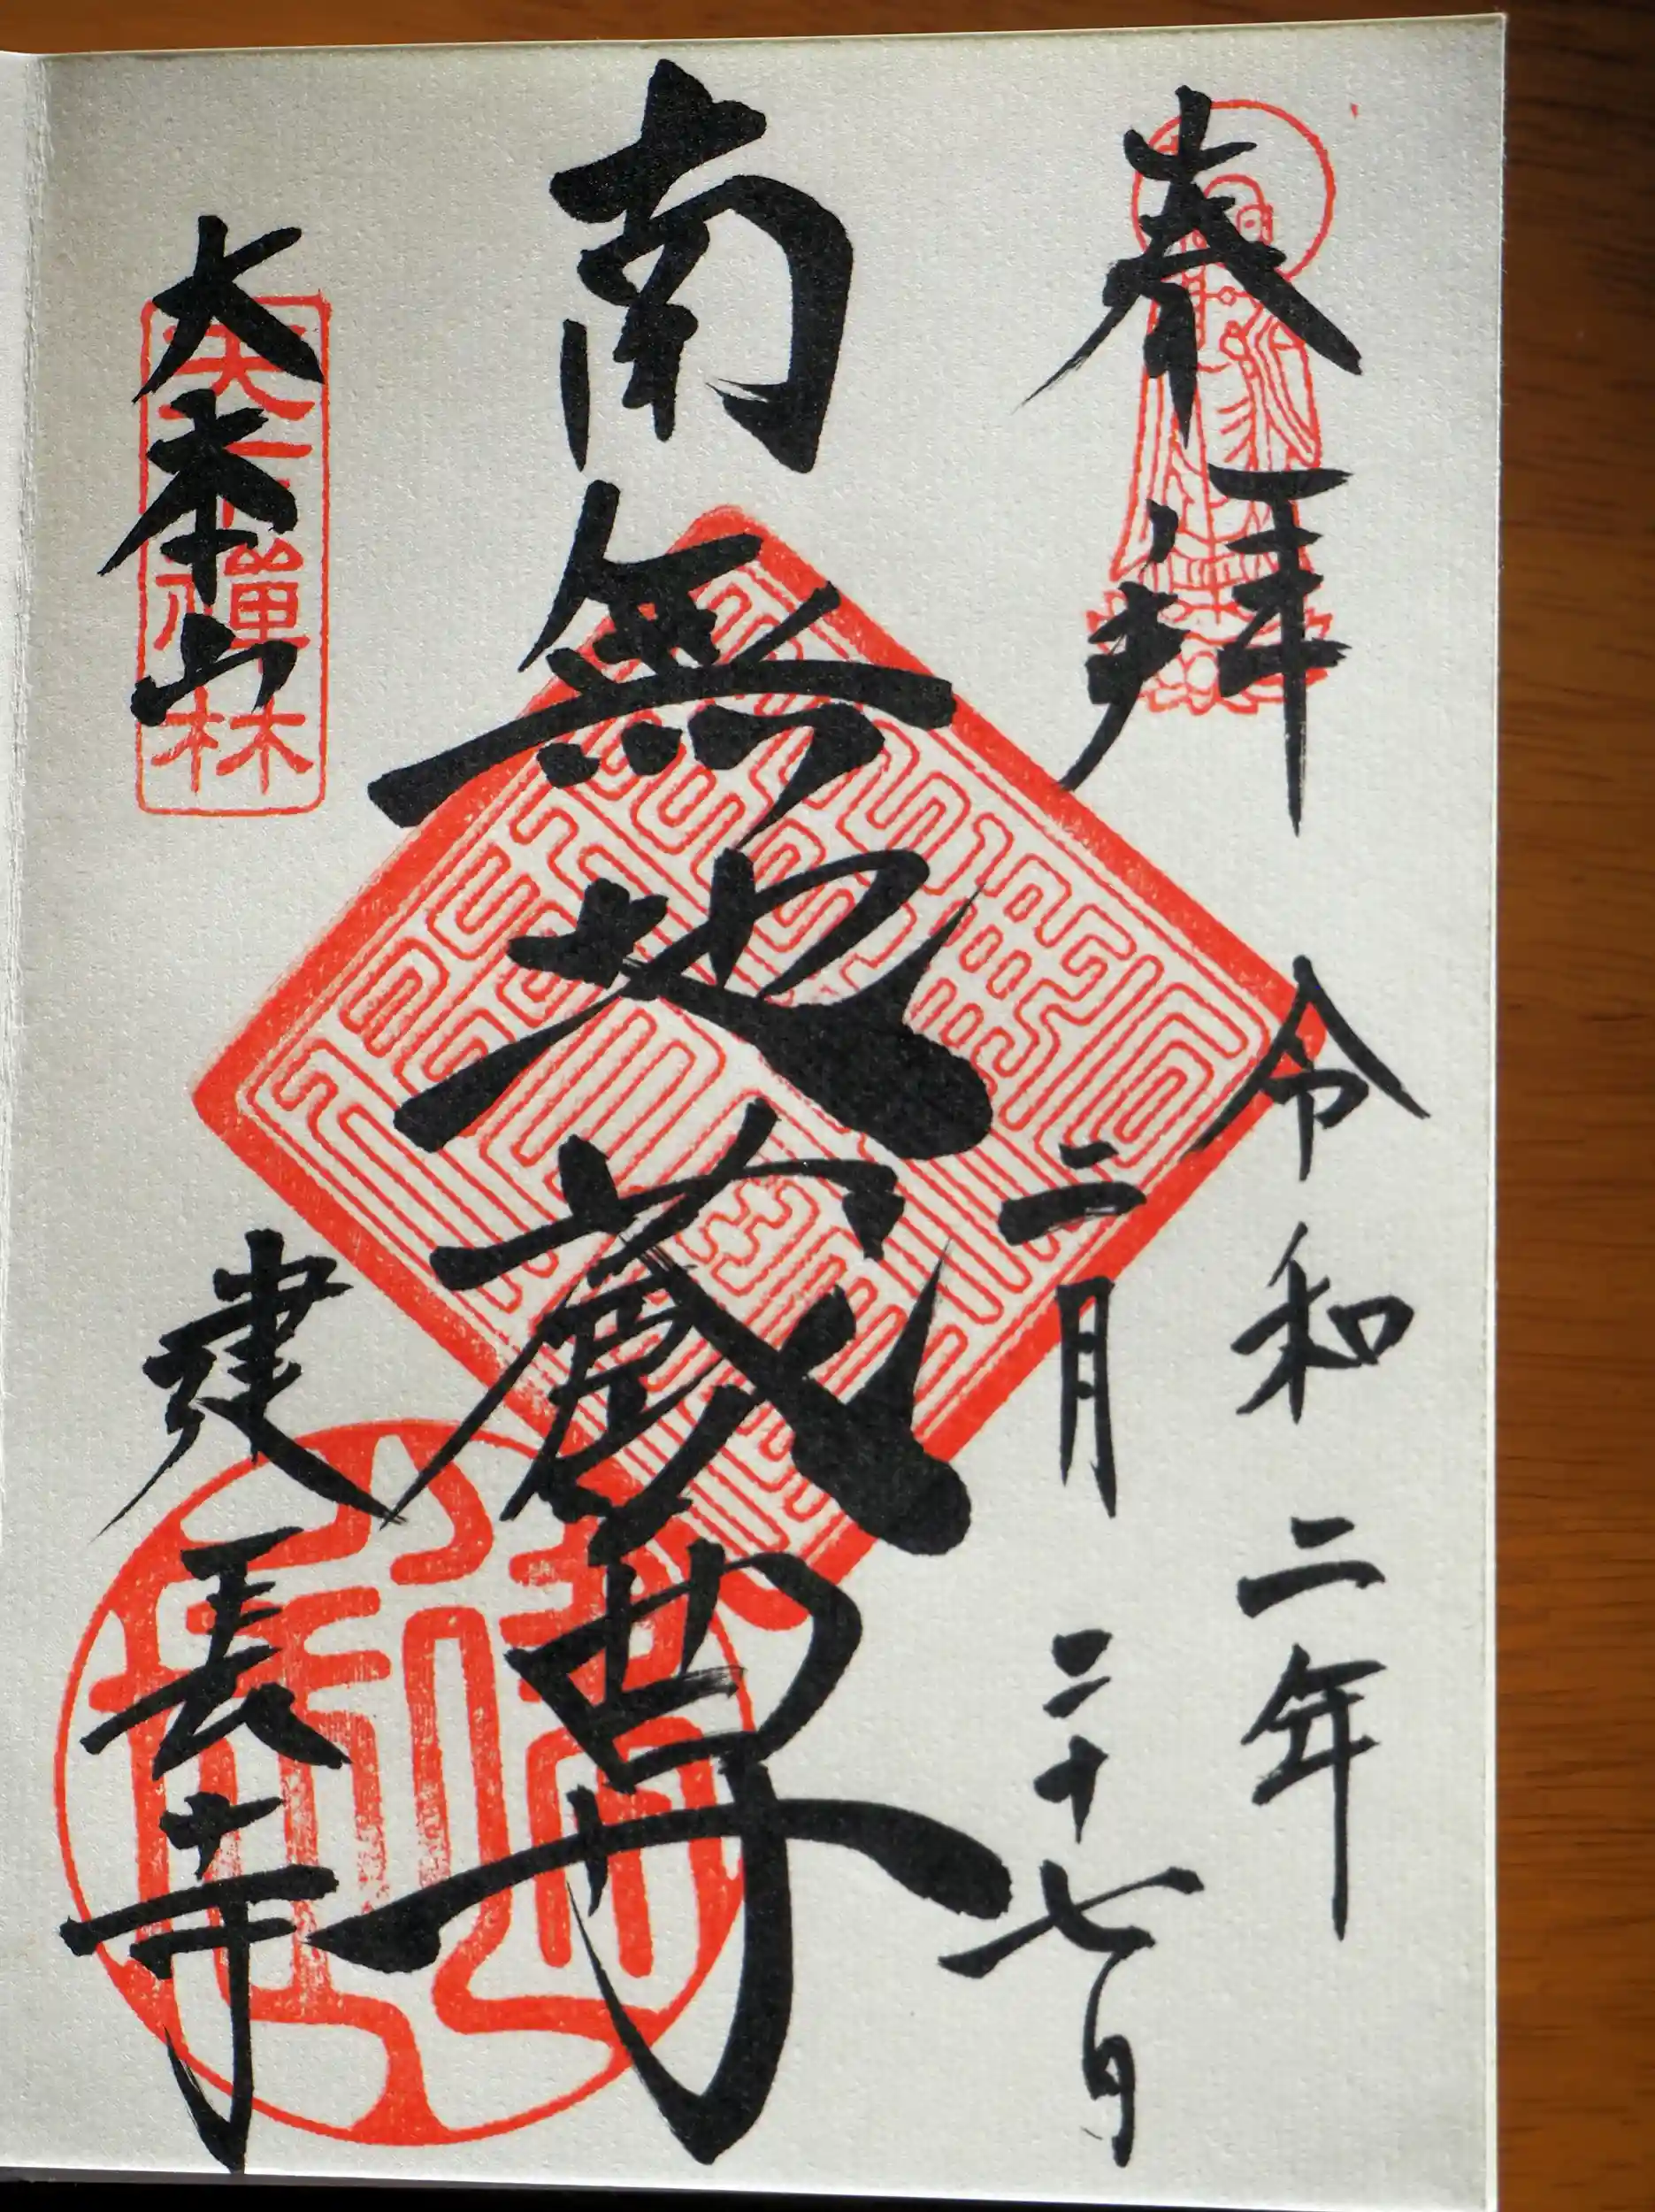 奉拝
令和二年
二月二十七日
南無地蔵尊
大本山
建長寺
天下禅林